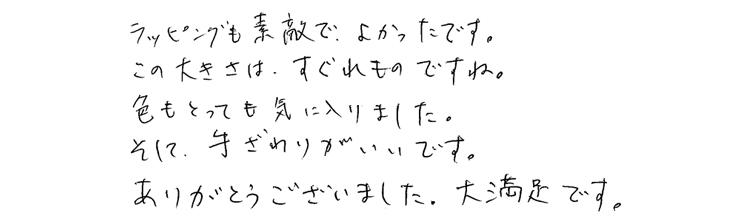 ラッピングも素敵で、よかったです。
この大きさは、すぐれものですね。
色もとっても気に入りました。
そして、手ざわりがいいです。
ありがとうございました。大満足です。